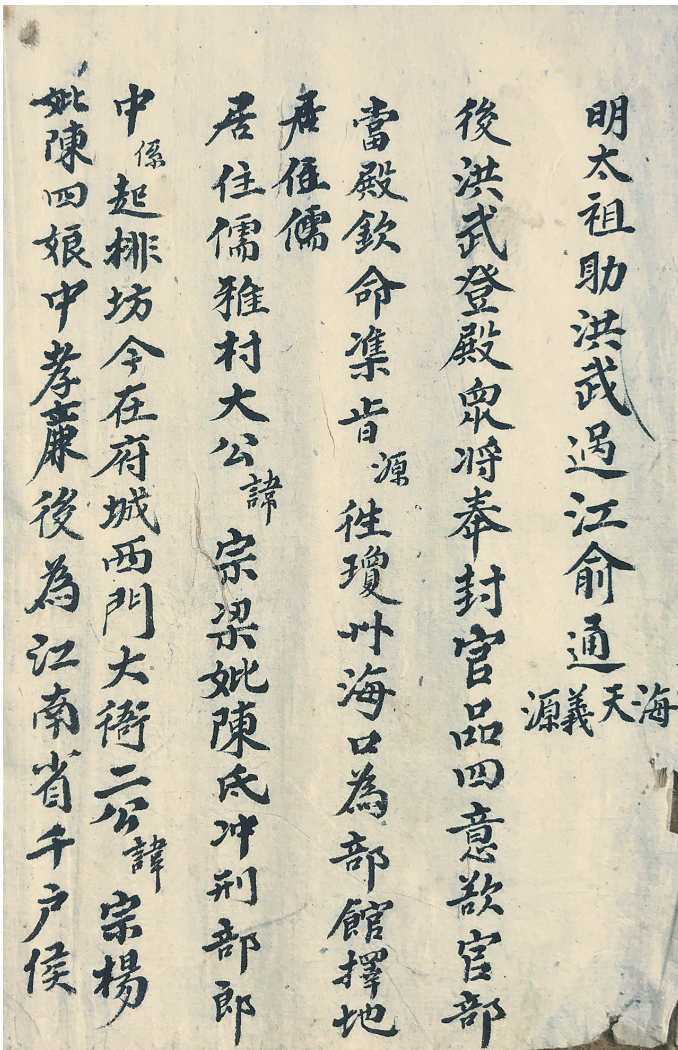 明太祖助洪武過江俞通海天義源
後洪武登殿眾将奉封官品四意欲官部
當殿欽命準旨源徃瓊州海口為部館擇地
居住儒
居住儒雅村大公諱宗梁妣陳氏冲刑部郎
中係起排坊今在府城西門大衙二公諱宗楊
妣陳四娘中孝廉後為江南省千户侯